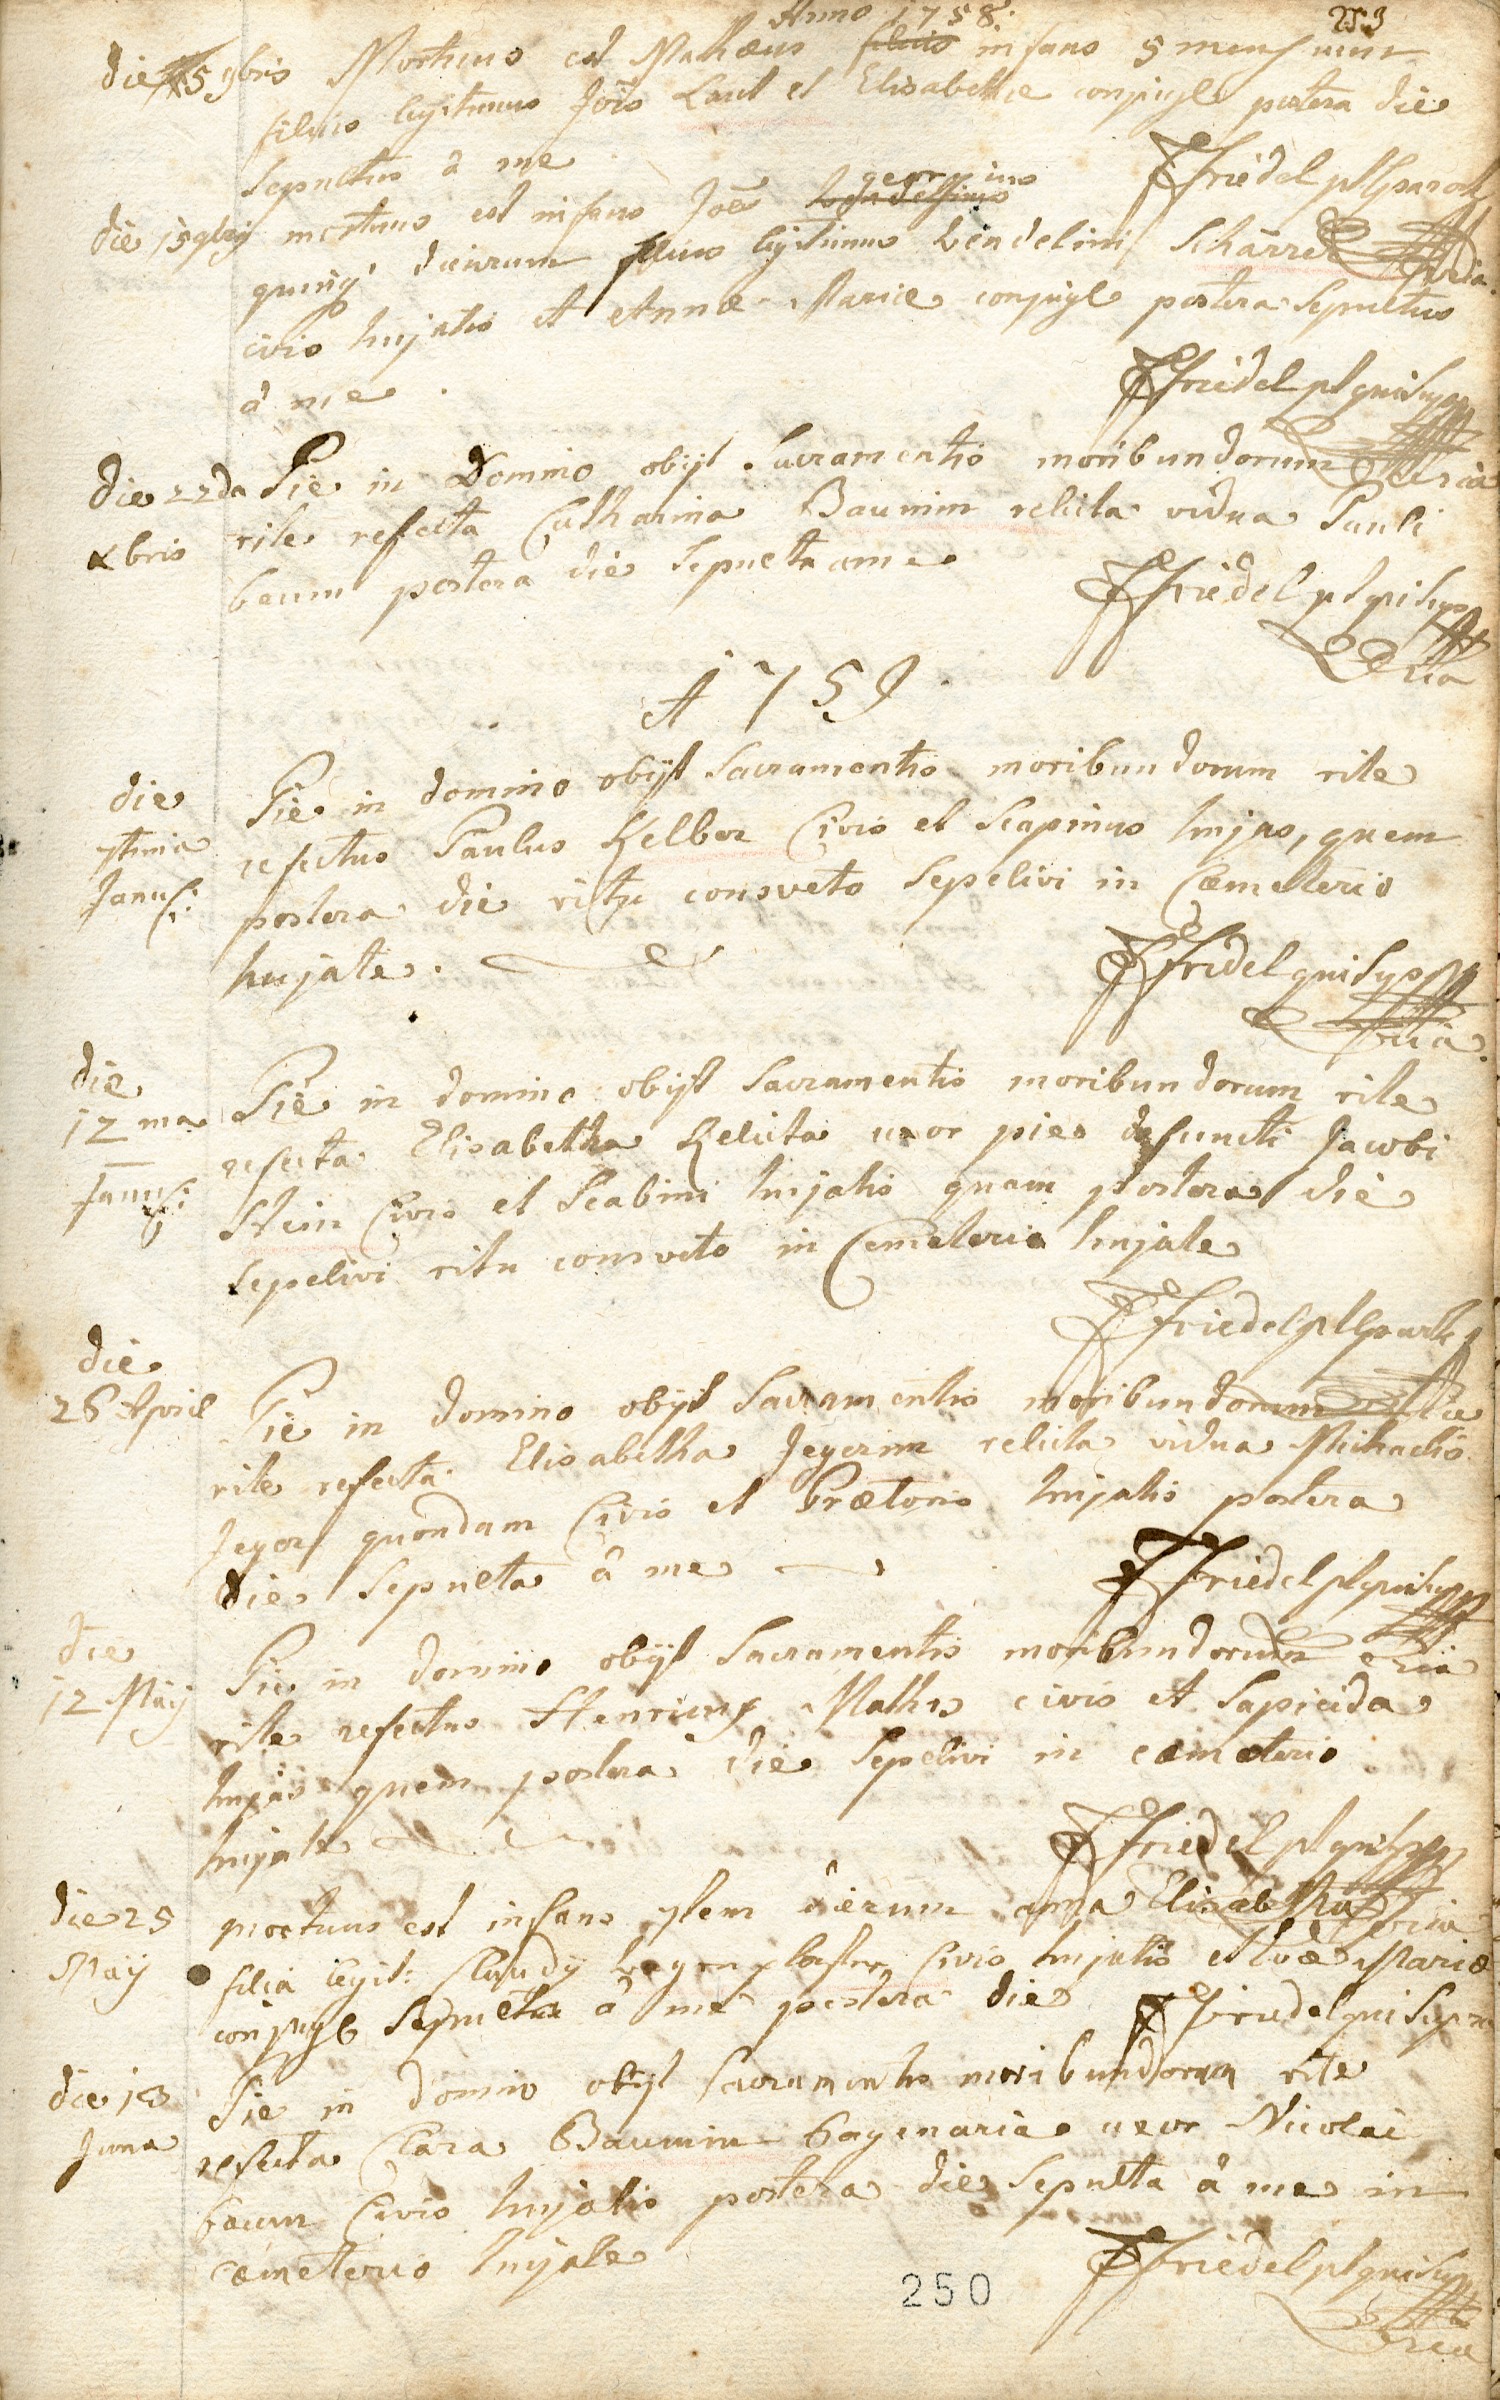 Anno 1758. 253
die 5 9bris Mortuus est Mathæus filius infans 5 mensium
filius legitimus Jois Laul et Elisabethæ conjugū postera die
sepultus à me
FFriedel plParoch
die 15 9bris mortuus est infans Joēs georgius
quinq dierum filius legitimus Wendelini Scharre
civis hujatis et Annæ Mariæ conjugū postera sepultus
à me.
FFriedel pl qui supra
die 22da Pie in Domino obijt Sacramentis moribundorum
xbris rite refecta Catharina Baumin relicta vidua Pauli
baum postera die sepulta a me
FFriedel pl qui supra
A 1759.
die Pie in domino obijt Sacramentis moribundorum rite
7tima refectus Paulus Kelber Civis et Scapinus hujas, quem
Janu: postera die ritu consveto Sepelivi in Cœmeterio
hujate.
FFridel qui supra
die
12ma Pie in domino obijt Sacramentis moribundorum rite
refecta Elisabetha Relicta uxor pie defuncti Jacobi
Janu: Stein Civis et Scabini hujatis quam postera die
Sepelivi ritu consveto in Cemeterio hujate
FFriedel plParoch
die
26 April Pie in domino obijt Sacramentis moribundorum
rite refecta Elisabetha Jegerin relicta vidua Michaelis
Jeger quondam Civis et Prætoris hujatis postera
die sepulta â me
FFriedel pl qui supra
die Pie in domino obijt Sacramentis moribundorum
12 Maÿ rite refectus Henricus Mathis civis et Lapicida
hujas quem postera die Sepelivi in cœmeterio
hujate
FFriedel pl qui supra
die 25 mortuus est infans 7tem dierum anna Elisabetha
May filia legit: Claudÿ Civis hujatis et Evæ Mariæ
conjugū Sepulta â me postera die FFriedel qui supra
die 13 Pie in domino obijt Sacramentis moribundorum rite
Juna refecta Clara Baumin uxor Nicolai
baum Civis hujatis postera die Sepulta â me in
cœmeterio hujate
FFriedel pl qui supra
250